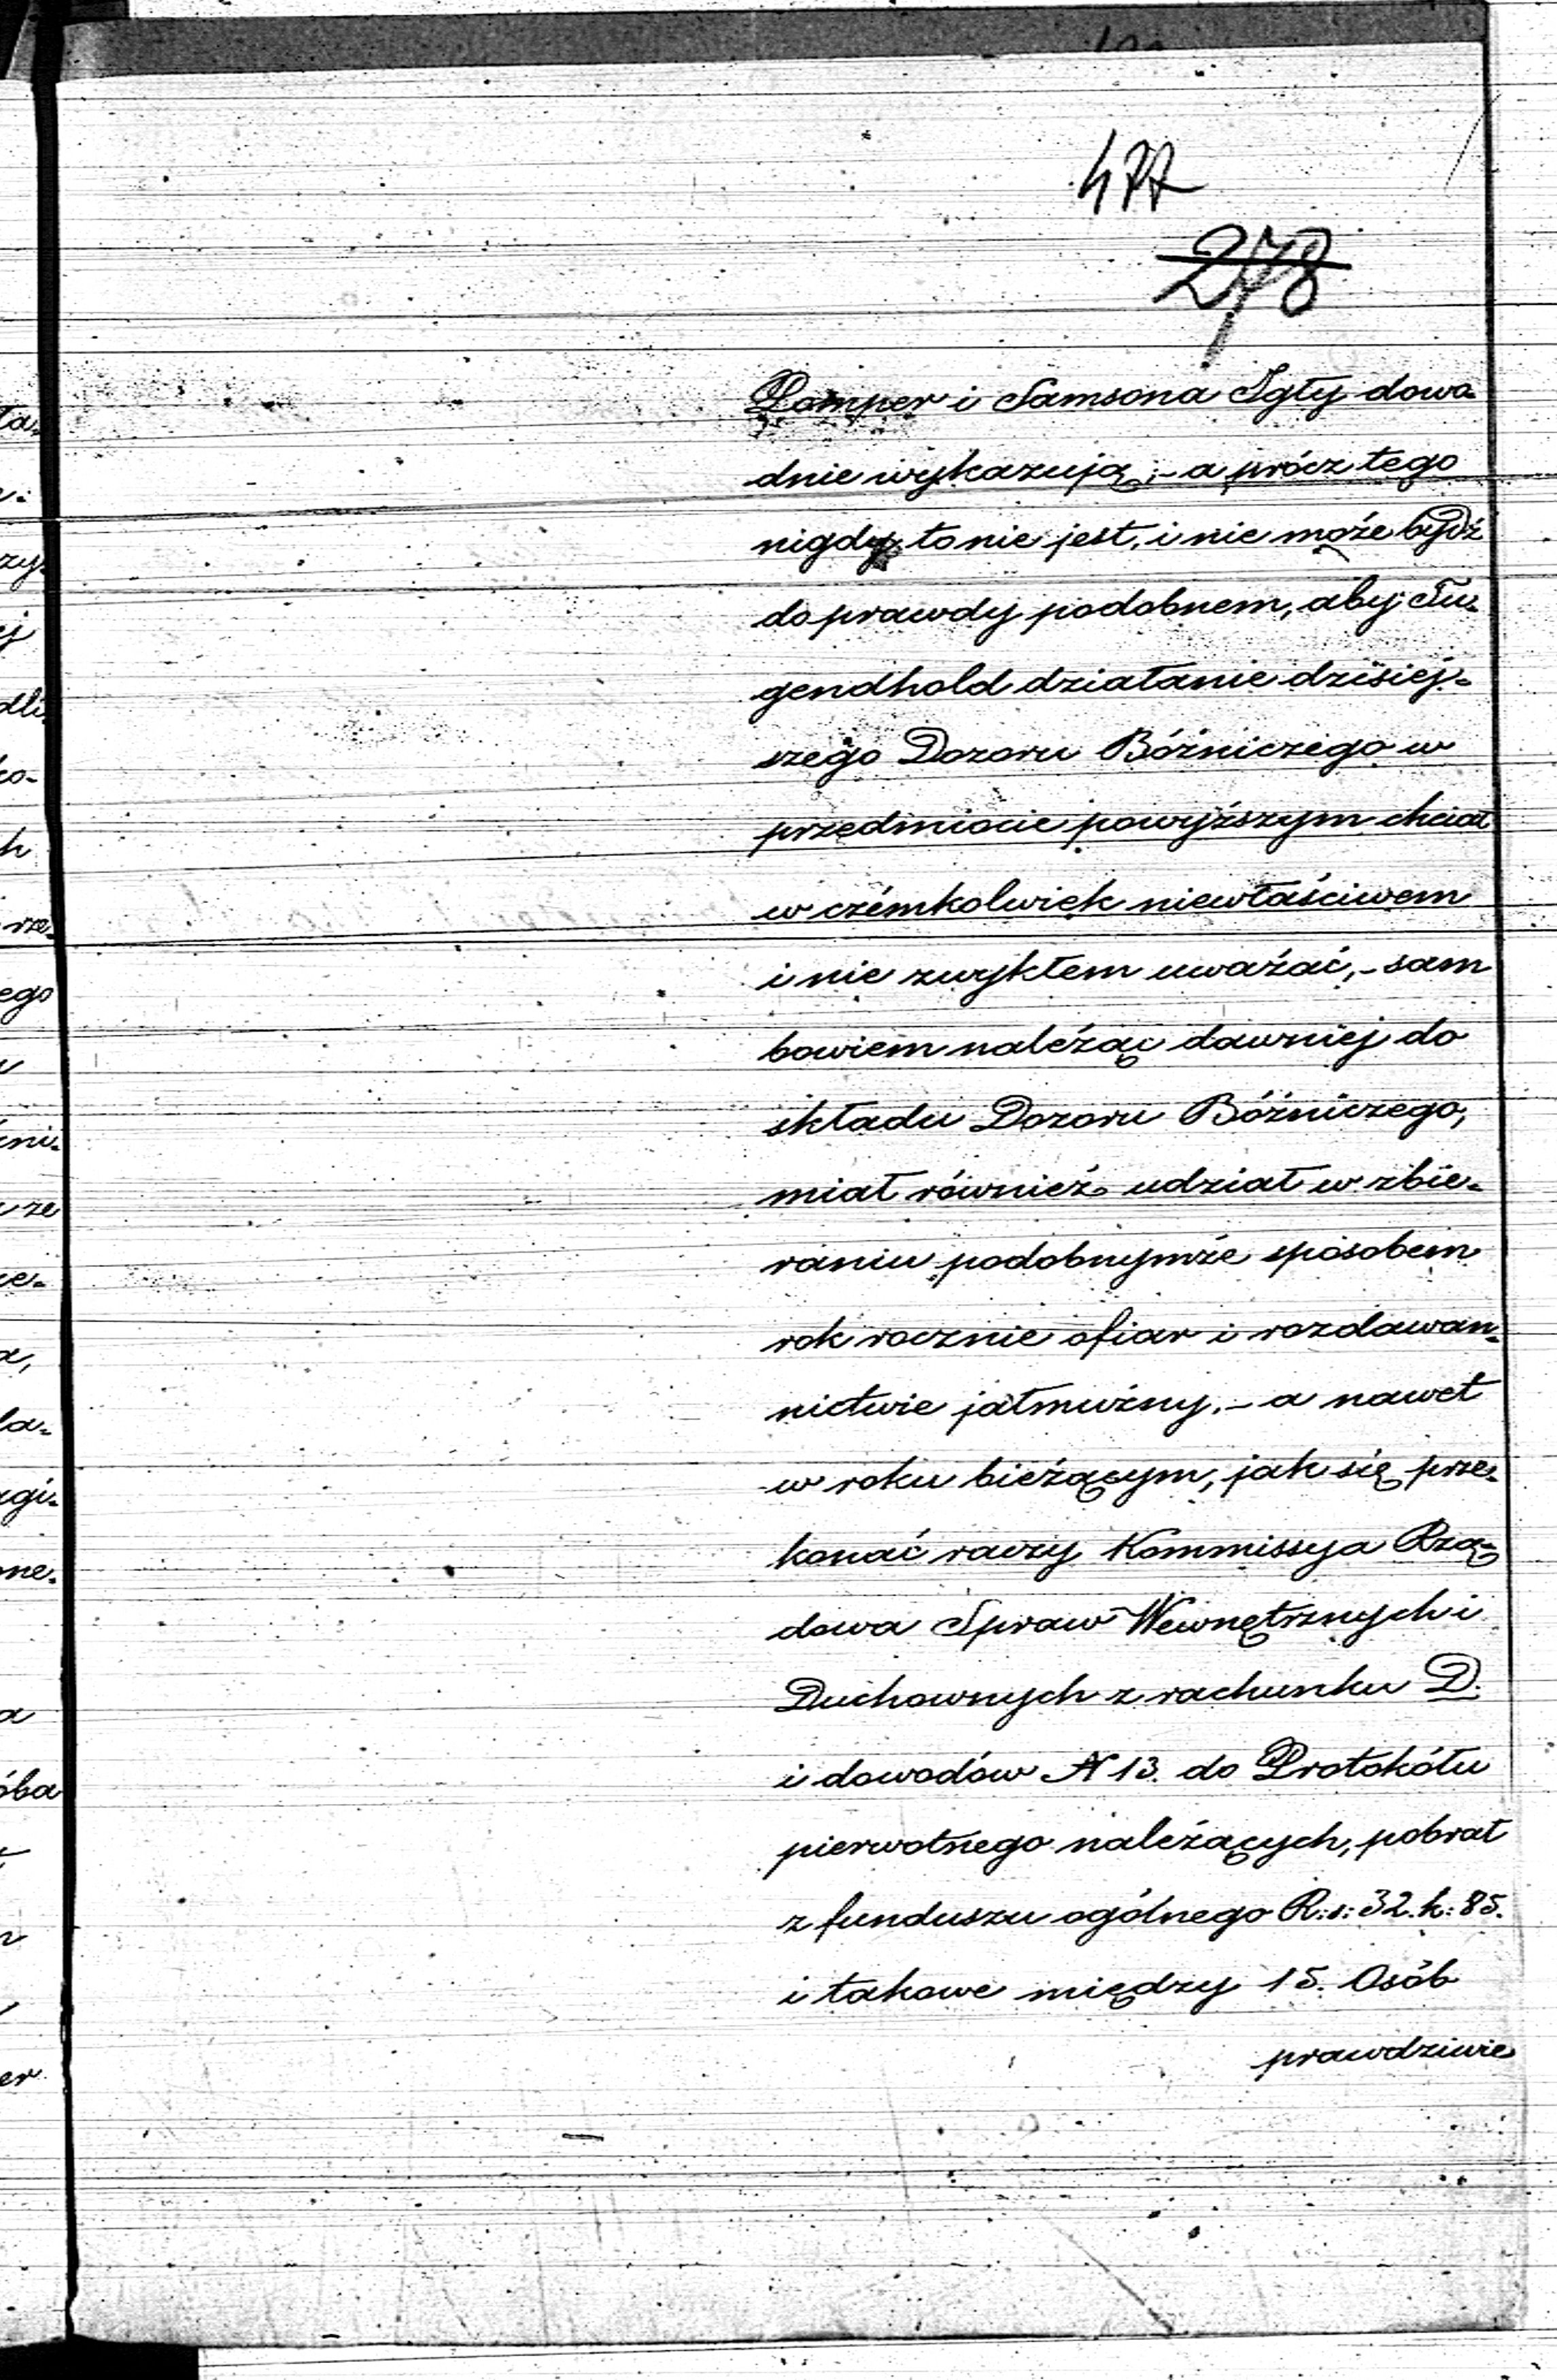 477
278
Pomper i Samsona Igły dowo-
dnie wykazują; - a prócz tego
nigdy to nie jest, i nie może bydź
do prawdy podobnem, aby Tu-
gendhold działanie dzisiej-
szego Dozoru Bóźniczego w
przedmiocie powyższym chciał
w czémkolwiek niewłaściwem
i nie zwykłem uważać, - sam
bowiem należąc dawniej do
składu Dozoru Bóźniczego,
miał również udział w zbie-
raniu podobnymże sposobem
rok rocznie ofiar i rozdawan-
nictwie jałmużny, - a nawet
w roku bieżącym, jak się prze-
konać raczy Kommissya Rzą-
dowa Spraw Wewnętrznych i
Duchownych z rachunku D.
i dowodów N 13. do Protokółu
pierwotnego należących, pobrał
z funduszu ogólnego R: s: 32. k: 85.
i takowe między 15. Osób
prawdziwie